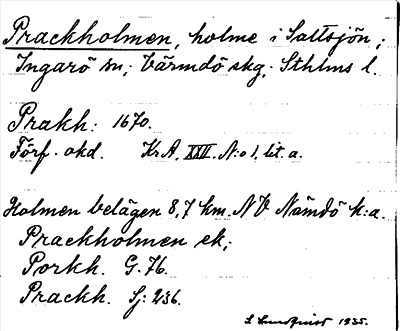 Prackholmen, holme i Saltsjön;
Ingarö sn; Värmdö skg. Sthlms l.
Prakh: 1670.
Förf. okd. KrA, XXII. N:o 1, lit. a.
Holmen belägen 8,7 km. NV Nämdö k:a.
Prackholmen ek;
Porkh. G. 76.
Prackh. Sj: 236.
S Lundqvist 1935.